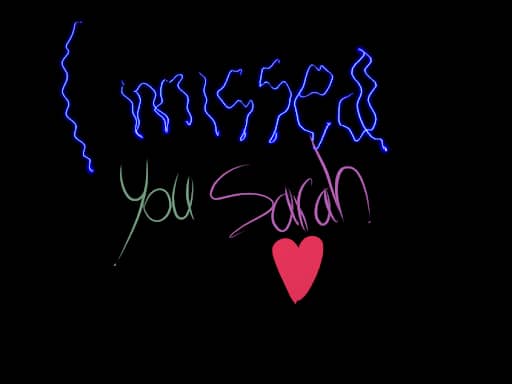 I missed
you Sarah